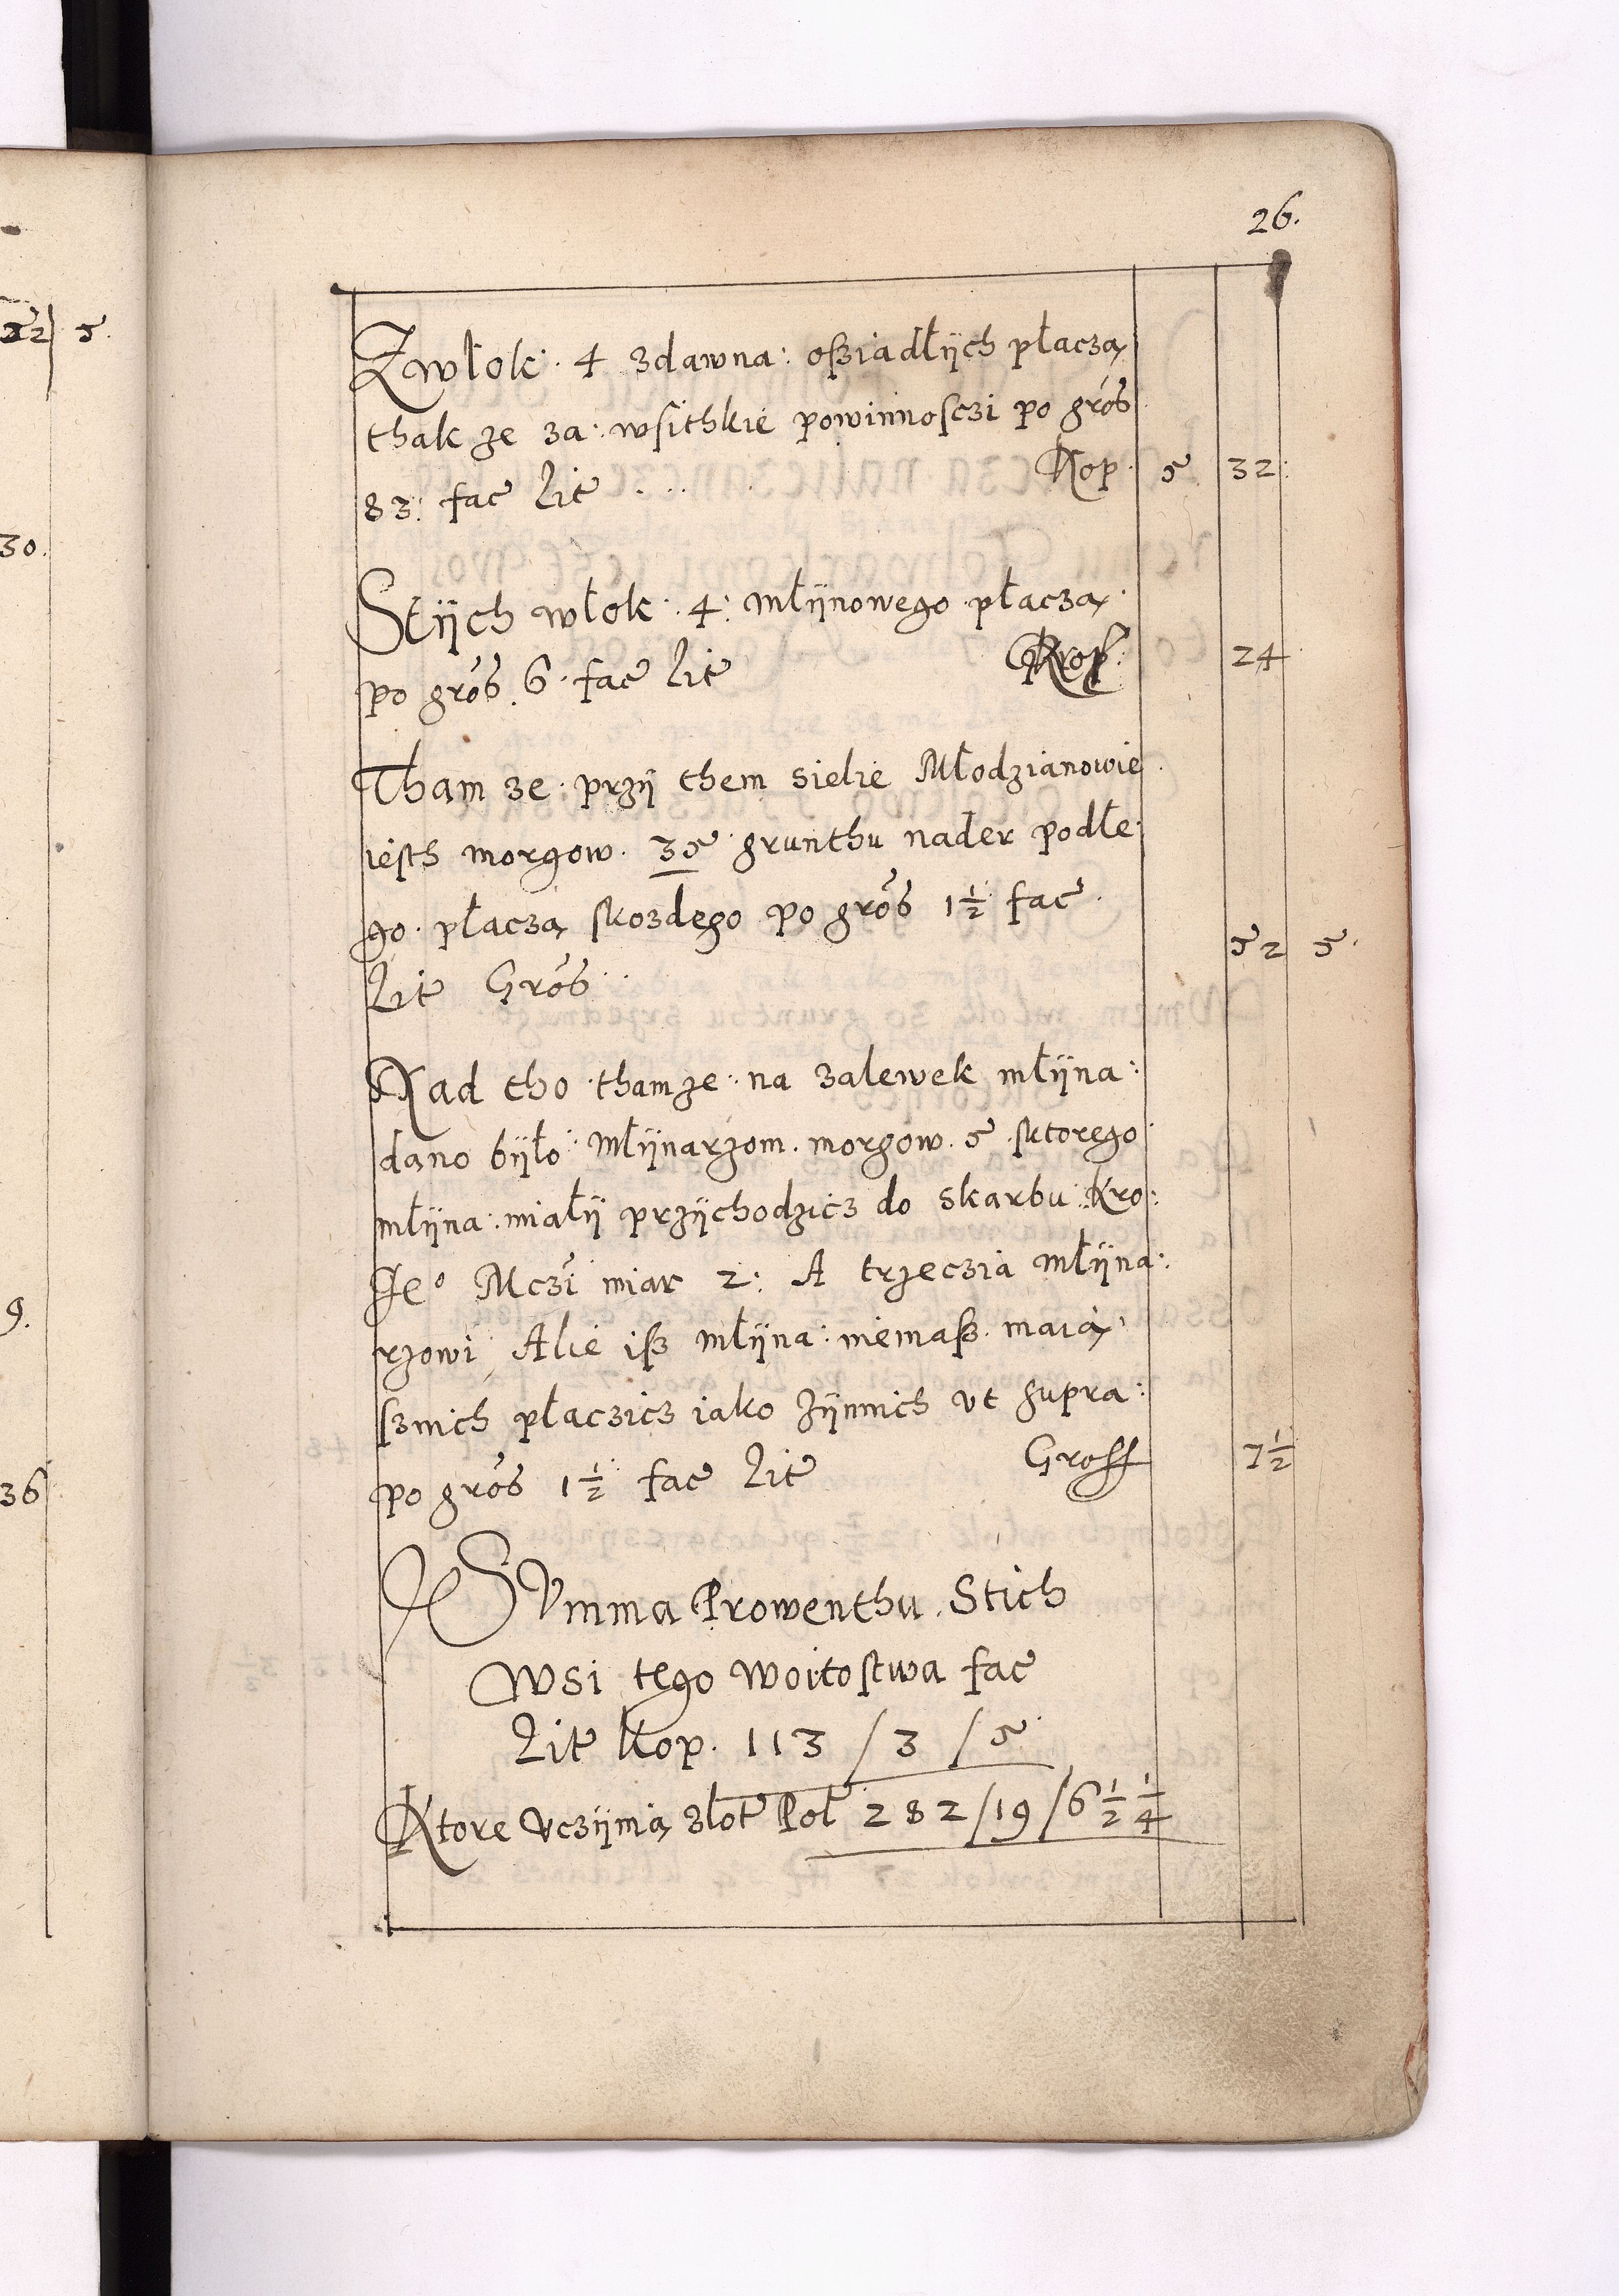 26.
Zwłok. 4 zdawna: osziadłÿch płaczą
thak ze za: wsithkie powinnosczi po gros
83: fac Lit Kop. 5 32:
Stÿch włok. 4: młÿnowego płaczą
po gros. 6. fac Lit 24
Tham ze przÿ them sielie Młodzianowie
iesth morgow. 35 grunthu nader podłe
go. płaczą skozdego po gros 1½ fac
Lit Gros 52 5.
Nad tho thamze na zalewek młÿna:
dano bÿło młÿnarzom. morgow. 5 sktorego
młÿna: miałÿ przÿchodzicz do skarbu Kro:
Je° Mczi miar 2: A trzeczia młÿna:
rzowi Alie isz młÿna: niemasz maią
sznich płaczicz iako zÿnnich vt supra:
po gros 1½ fac Lit Gross 7½
SVmma Prowenthu Stich
Wsi tego Woitostwa fac
Lit Kop. 113 / 3 / 5
Ktore vczÿnią złot Pol 282/19/6½ ¼
22 5.
30.
9.
36